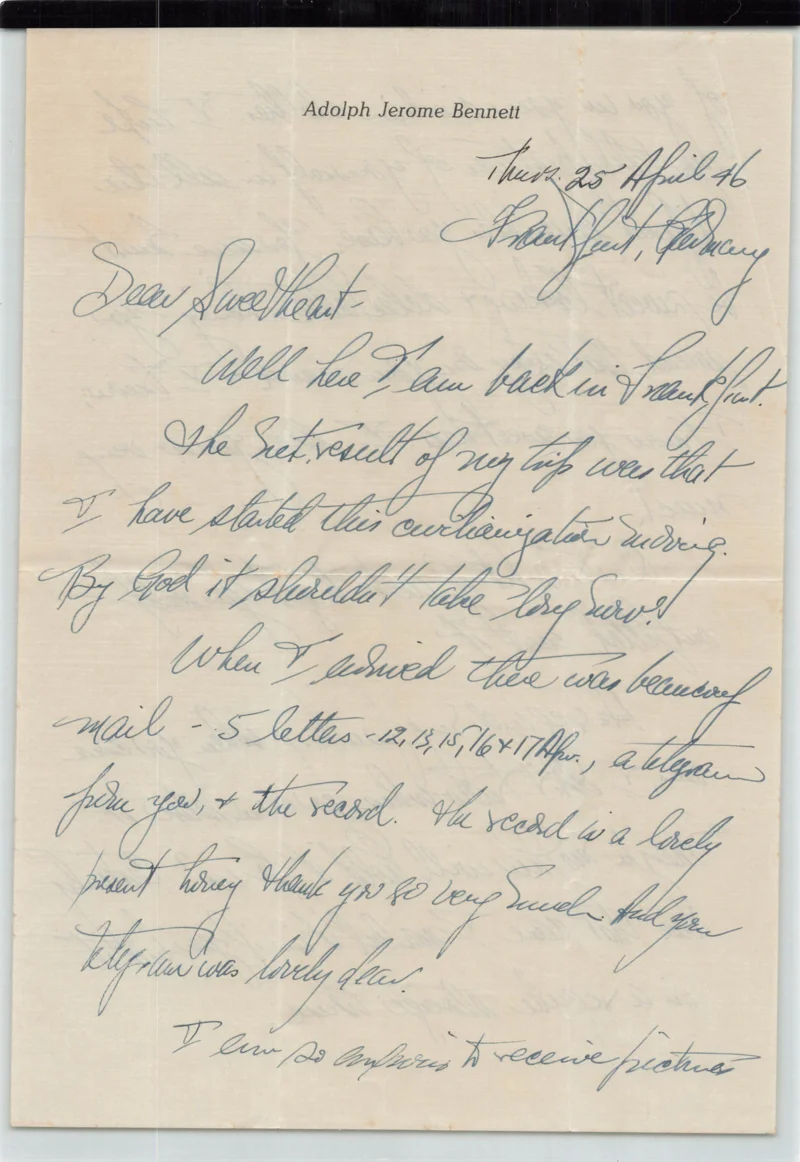 Adolph Jerome Bennett
Thurs. 25 April 46
Frankfurt, Germany
Dear Sweetheart-
Well here I am back in Frankfurt.
The net result of my trip was that
I have started this civilianization moving.
By God it shouldn't take long now!
When I arrived there was beaucoup
mail - 5 letters - 12, 13, 15, 16 & 17 Apr., a telegram
from you, & the record. The record is a lovely
present honey & thank you so very much. And your
telegram was lovely dear.
I am so anxious to receive pictures